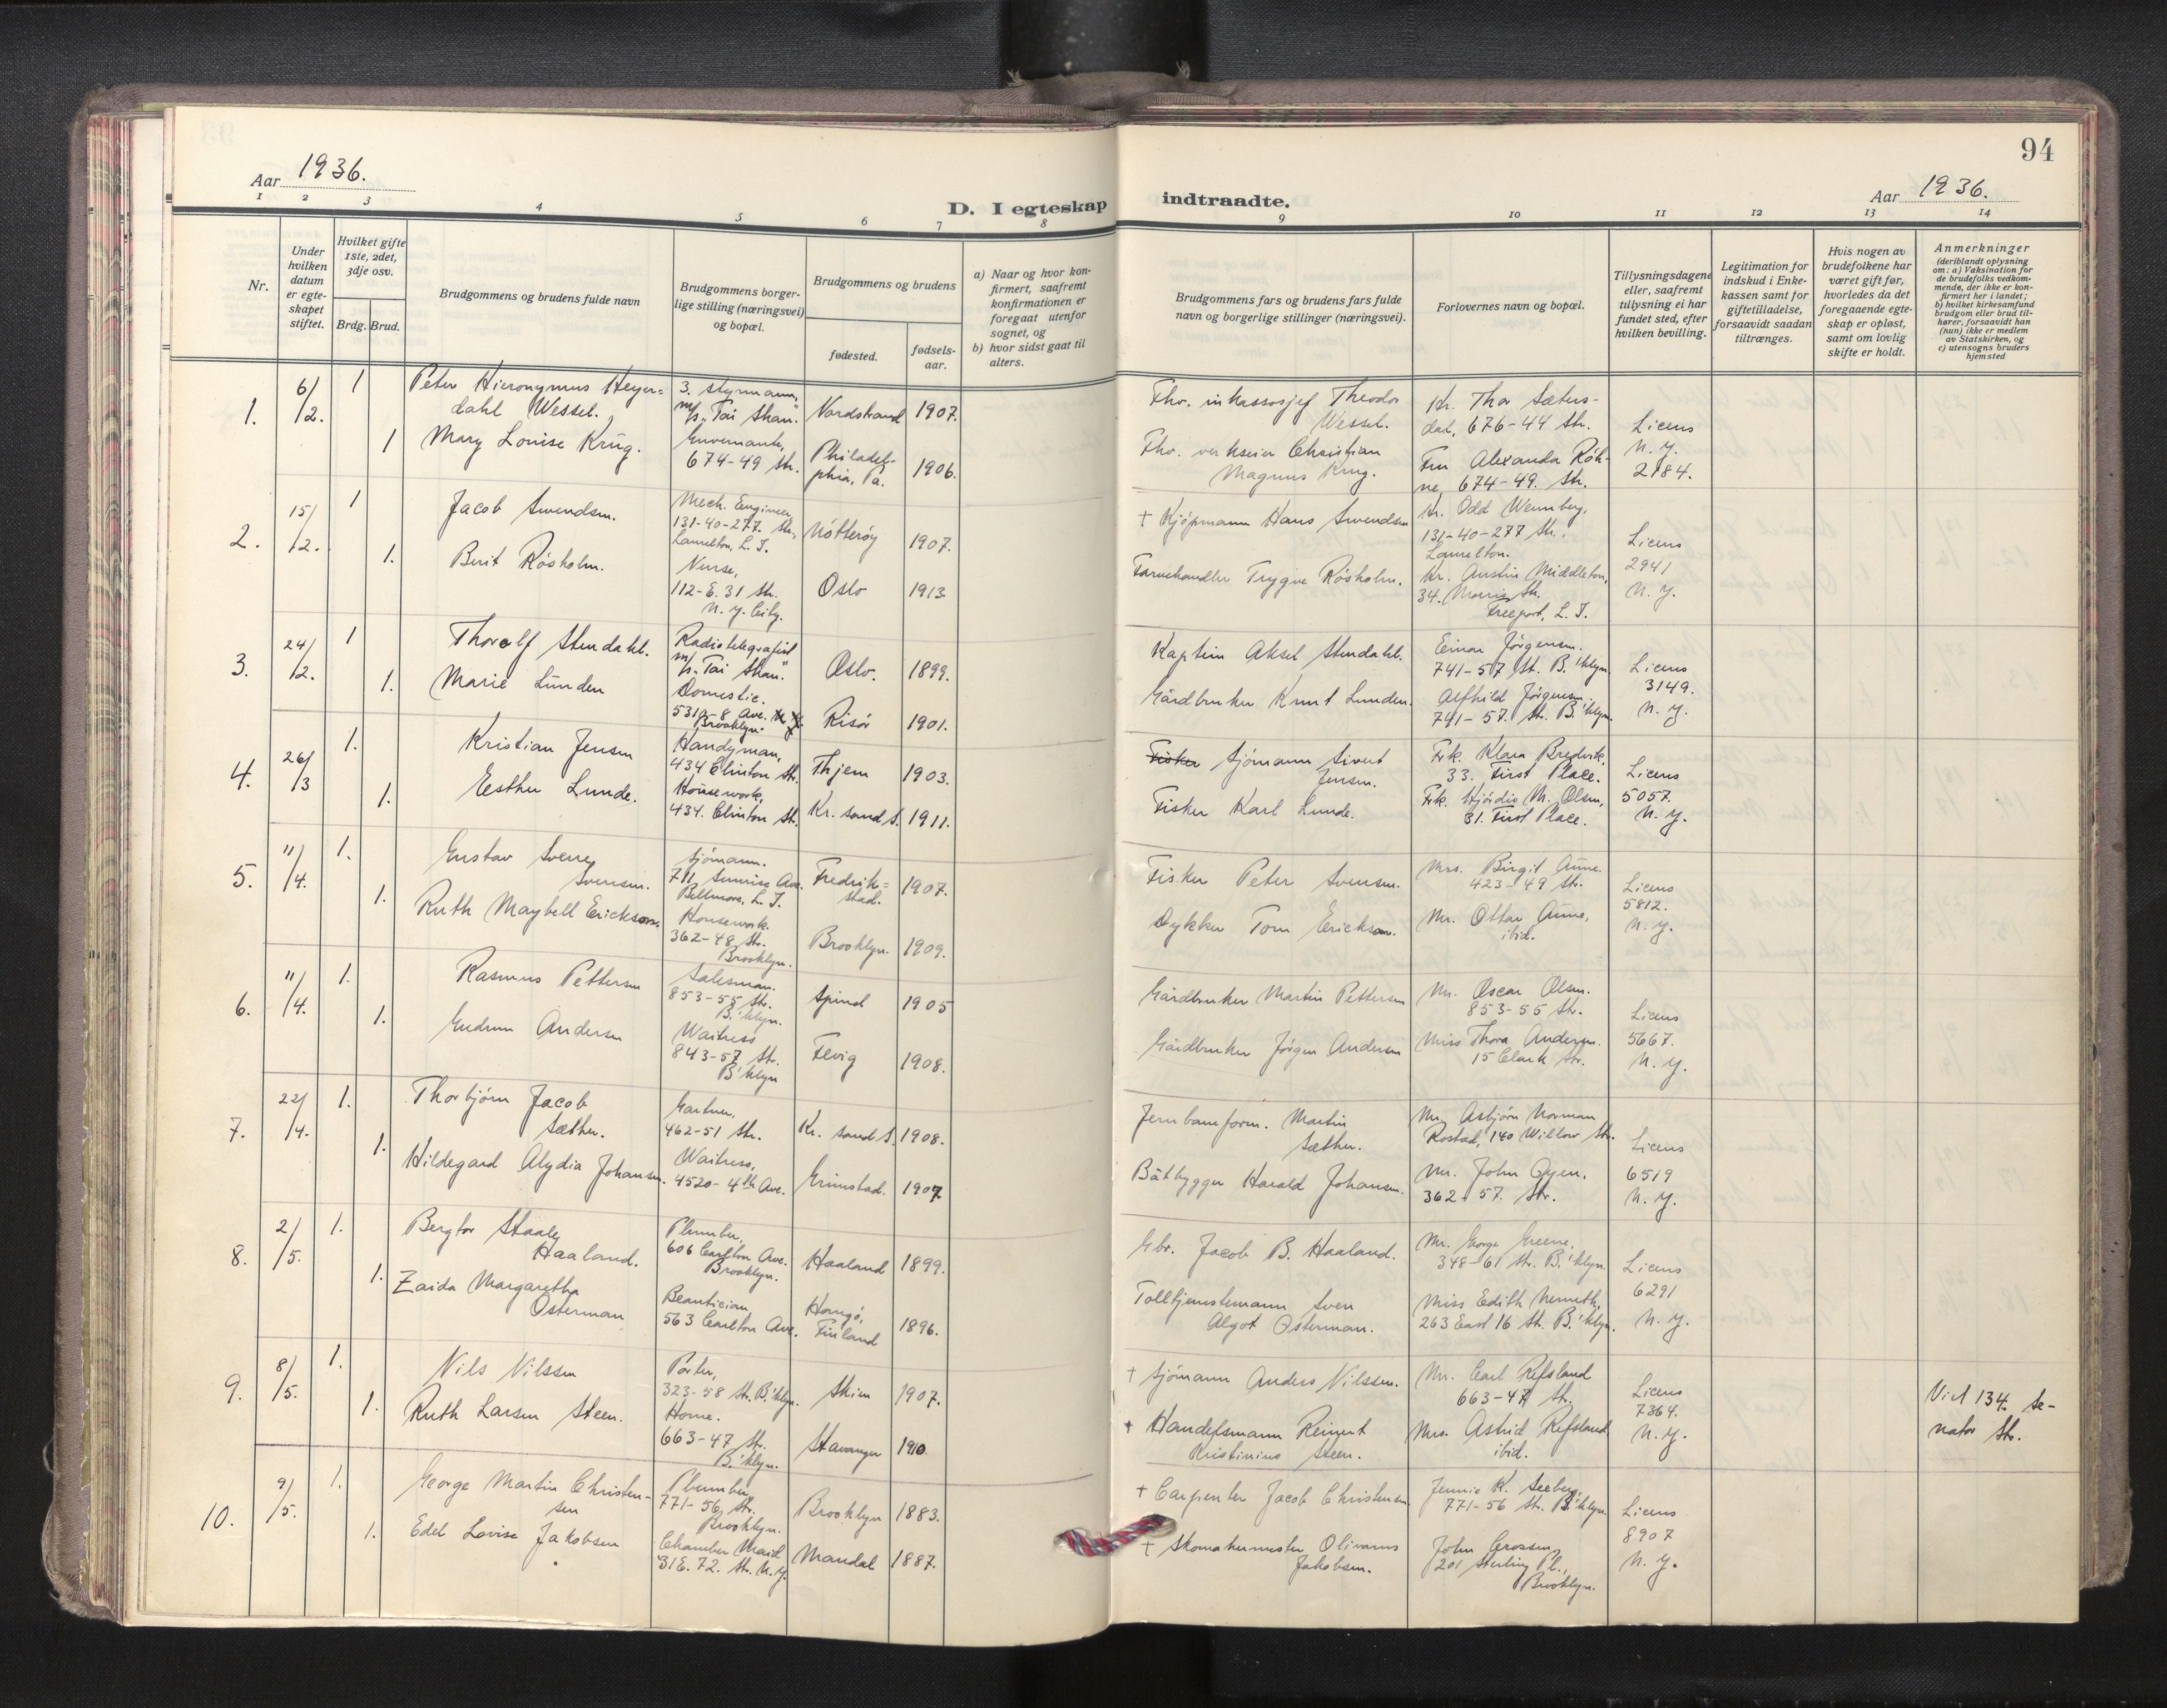 Aar 1936.
D. I egteskap
1 2 3 4 5 6 7 8
Nr.
Under hvilken datum er egteskapet stiftet.
Hvilket gifte 1ste, 2det, 3dje osv.
Brdg. Brud.
Brudgommens og brudens fulde navn
Brudgommens borgerlige stilling (næringsvei) og bopæl.
Brudgommens og brudens
fødested.
fødselsaar.
a) Naar og hvor konfirmert, saafremt konfirmationen er foregaat utenfor sognet, og
b) hvor sidst gaat til alters.
1. 6/2. 1 Peter Hieronymus Heyer=
dahl Wessel.
3. styrmann,
m/s. "Tai Shan."
Nordstrand 1907.
1 Mary Louise Krug.
Guvernante,
674-49 Str.
Philadel-
phia, Pa. 1906.
2. 15/2. 1 Jacob Svendsen.
Mech. Engineer,
131-40-277. Str.,
Laurelton, L. I.
Nötteröy 1907.
1. Berit Rösholm.
Nurse,
112-E. 31 Str.
N. Y. City.
Oslo 1913.
3. 24/2. 1 Thoralf Stendahl.
Radiotelegrafist
m/s. "Tai Shan."
Oslo. 1899.
1. Marie Lunden
Domestic.
5310-8 Ave.
Brooklyn.
Risör 1901.
4. 26/3 1. Kristian Jensen
Handyman,
434 Clinton St.
Thjem 1903.
1. Esther Lunde.
Housework,
434. Clinton St.
Kr. sand S. 1911.
5. 11/4. 1. Gustav Sverre
Svensen.
Sjömann.
711, Sunrise Ave.
Bellmore, L. I.
Fredrik=
stad. 1907.
1. Ruth Maybell Erickson.
Housework.
362-48 Str.
Brooklyn.
Brooklyn. 1909.
6. 11/4. 1. Rasmus Pettersen
Salesman.
853-55 Str.
B.'klyn.
Spind 1905
1. Gudrun Andersen
Waitress
843-57 Str.
B'klyn
Fevig 1908.
7. 22/4. 1. Thorbjörn Jacob
Sæther.
Gartner,
462-51 Str.
Kr. sand S. 1908.
1. Hildegard Alydia Johansen.
Waitress,
4520-4th Ave.
Grimstad. 1907
8. 2/5. 1. Bergtor Staale
Haaland.
Plumber,
606 Carlton Ave.
Brooklyn.
Haaland 1899.
1. Zaida Margaretha
Osterman
Beautician,
563 Carlton Ave.
Hangö,
Finland 1896.
9. 8/5. 1. Nils Nilssen
Porter,
323-58 Str. B.'klyn.
Skien 1907.
1. Ruth Larsen Steen.
Home.
663-47 Str.
B.'klyn.
Stavanger 1910.
10. 9/5. 1. George Martin Christen-
sen
Plumber,
771-56, Str.
Brooklyn.
Brooklyn 1883.
1. Edel Lovise Jakobsen
Chamber Maid
31 E. 72. Str. N.Y.
Mandal 1887.
94
indtraadte. Aar 1936.
9 10 11 12 13 14
Brudgommens fars og brudens fars fulde navn og borgerlige stillinger (næringsvei).
Forlovernes navn og bopæl.
Tillysningsdagene eller, saafremt tillysning ei har fundet sted, efter hvilken bevilling.
Legitimation for indskud i Enkekassen samt for giftetilladelse, forsaavidt saadan tiltrænges.
Hvis nogen av brudefolkene har været gift før, hvorledes da det foregaaende egteskap er opløst, samt om lovlig skifte er holdt.
Anmerkninger
(deriblandt oplysning om: a) Vaksination for de brudefolks vedkommende, der ikke er konfirmert her i landet; b) hvilket kirkesamfund brudgom eller brud tilhører, forsaavidt han (hun) ikke er medlem av Statskirken, og c) utensogns bruders hjemsted
Fhv. inkassosjef Theodor
Wessel.
Hr. Thor Sæters-
dal, 676-44 Str.
Licens
N. Y.
2184.
Fhv. verkseier Christian
Magnus Krug.
Fru Alexanda Röh-
ne, 674-49. Str.
+ Kjöpmann Hans Svendsen
Hr. Odd Wennberg,
131-40-277 Str.
Laurelton.
Licens
2941
N. Y.
Farvehandler Trygve Rösholm.
Hr. Austin Middleton,
34. Morris Str.
Freeport, L. I.
Kaptein Aksel Stendahl.
Einar Jörgensen.
741-57 St. B.'klyn.
Licens
3149.
N. Y.
Gårdbruker Knut Lunden.
Alfhild Jörgensen.
741-57. St. B.'klyn.
Fisker Sjömann Sivert
Jensen.
Frk. Klara Bredvik.
33. First Place.
Licens
5057.
N. Y.
Fisker Karl Lunde.
Frk. Hjördis M. Olsen,
31. First Place.
Fisker Peter Svensen.
Mrs. Birgit Aune.
423-49 Str.
Licens
5812.
N. Y.
Dykker Tom Erickson.
Mr. Ottar Aune,
ibid.
Gårdbruker Martin Pettersen
Mr. Oscar Olsen.
853-55 Str.
Licens
5667.
N. Y.
Gårdbruker Jörgen Andersen
Miss Thora Andersen.
15 Clark Str.
Jernbaneform. Martin
Sæther.
Mr. Asbjörn Norman
Rostad, 140 Willow Str.
Licens
6519
N. Y.
Båtbygger Harald Johansen.
Mr. John Oyen.
362-57. Str.
Gbr. Jacob B. Haaland.
Mr. George Greene,
348-61 Str. B.'klyn.
Licens
6291
N. Y.
Tolltjenstemann Sven
Algot Osterman.
Miss Edith Nemeth,
263 East 16 Str. B.'klyn.
+ Sjömann Anders Nilssen.
Mr. Carl Refsland
663-47 St.
Licens
7364.
N. Y.
Viel 134. Se-
nator Str.
+ Handelsmann Reinert
Kristinius Steen.
Mrs. Astrid Refsland
ibid.
+ Carpenter Jacob Christensen.
Jennie K. Seeberg,
771-56 Str. B.'klyn.
Licens
8907
N. Y.
+ Skomakermester Olivarius
Jakobsen.
John Crossen,
201 Sterling Pl.,
Brooklyn.